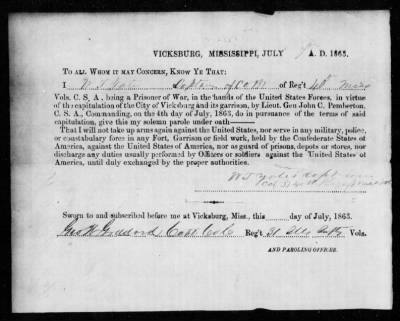 VICKSBURG, MISSISSIPPI, JULY A. D. 1863.
TO ALL WHOM IT MAY CONCERN, KNOW YE THAT:
I Captain of Co of Reg't
Vols. C. S. A., being a Prisoner of War, in the hands of the United States Forces, in virtue
of the capitulation of the City of Vicksburg and its garrison, by Lieut. Gen John C. Pemberton,
C. S. A., Commanding, on the 4th day of July, 1863, do in pursuance of the terms of said
capitulation, give this my solemn parole under oath—
That I will not take up arms again against the United States, nor serve in any military, police,
or constabulary force in any Fort, Garrison or field work, held by the Confederate States of
America, against the United States of America, nor as guard of prisons, depots or stores, nor
discharge any duties usually performed by Officers or soldiers against the United States of
America, until duly exchanged by the proper authorities.
Sworn to and subscribed before me at Vicksburg, Miss., this day of July, 1863.
Capt Co Reg't Vols.
AND PAROLING OFFICER.